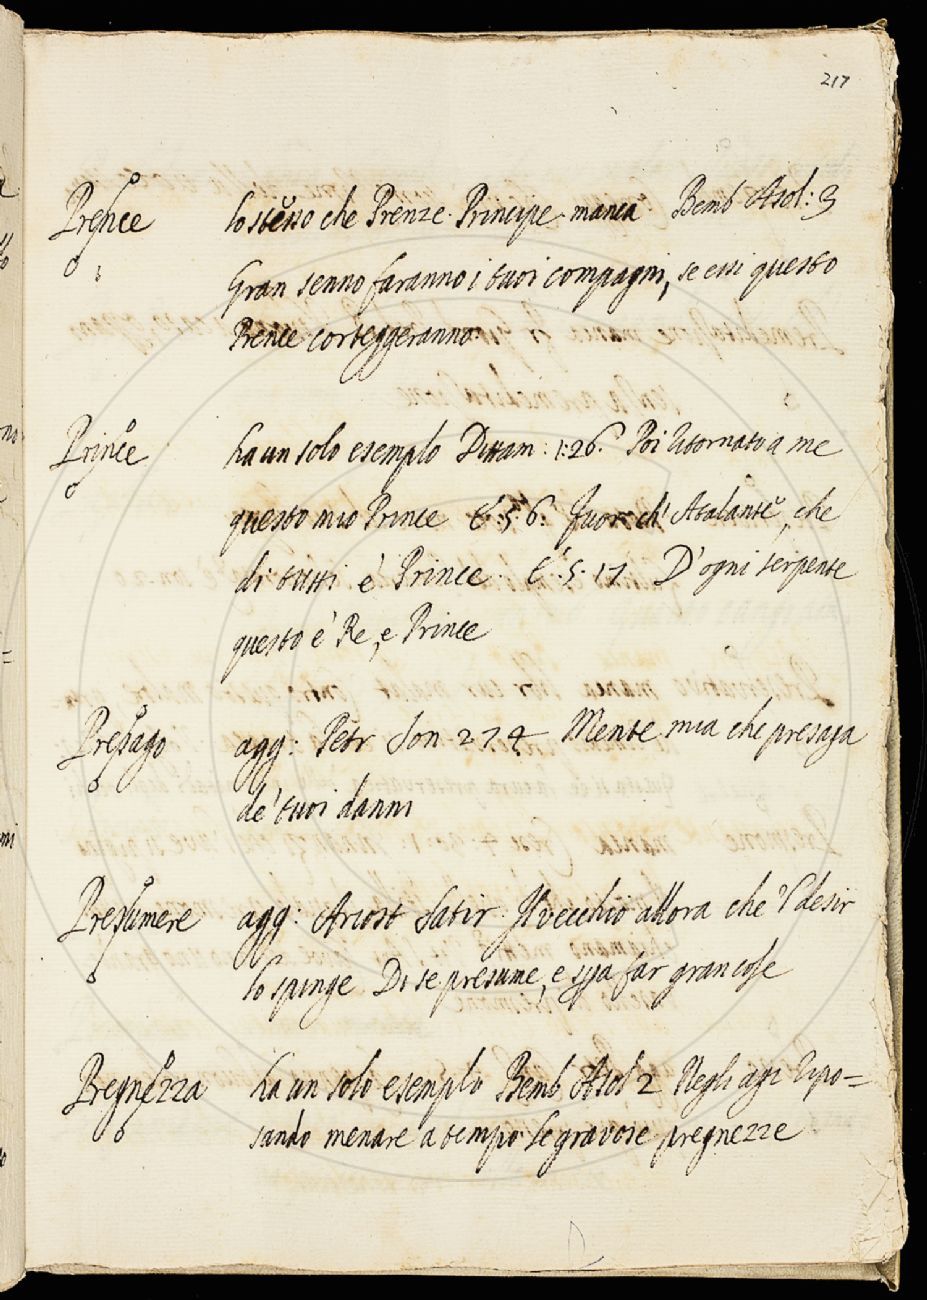 217
Prence lo stesso che Prenze Principe manca Bemb Asol: 3
Gran senno faranno i tuoi compagni, se essi questo
Prence corteggeranno
Prince ha un solo esempio Dittam: 1:26. Poi ritornato a me
questo mio Prince E. 5 6: Fuor ch' Atalante, che
di tutti è Prince. E. 5. 17 D'ogni serpente
questo è Re, e Prince
Presago agg: Petr Son 274 Mente mia che presaga
de' tuoi danni
Presumere agg: Ariost Satir. Il vecchio allora che 'l desir
lo spinge Di se presume, e far gran cose
Pregnezza ha un solo esempio Bemb Asol 2 Negli agi ripo=
sando menare a tempo le gravose pregnezze